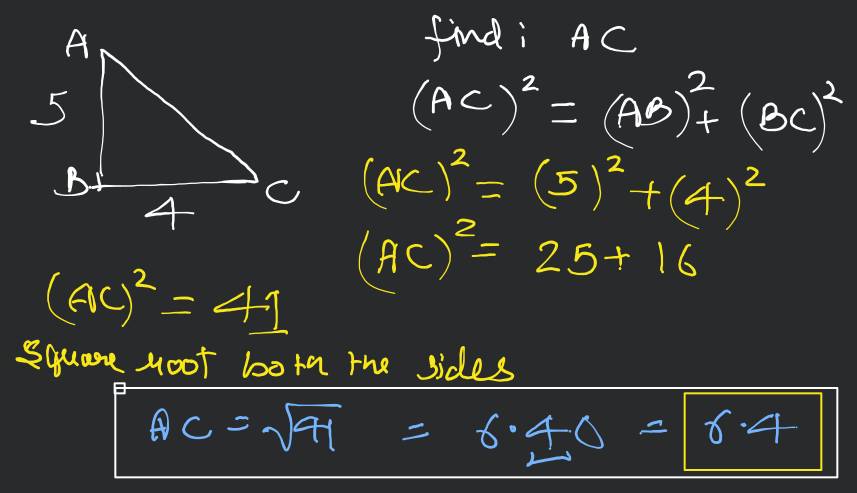 A
5
B
4
C
find : AC
(AC)² = (AB)² + (BC)²
(AC)² = (5)² + (4)²
(AC)² = 25 + 16
(AC)² = 41
Square root both the sides
AC = √41 = 6.40 = 6.4